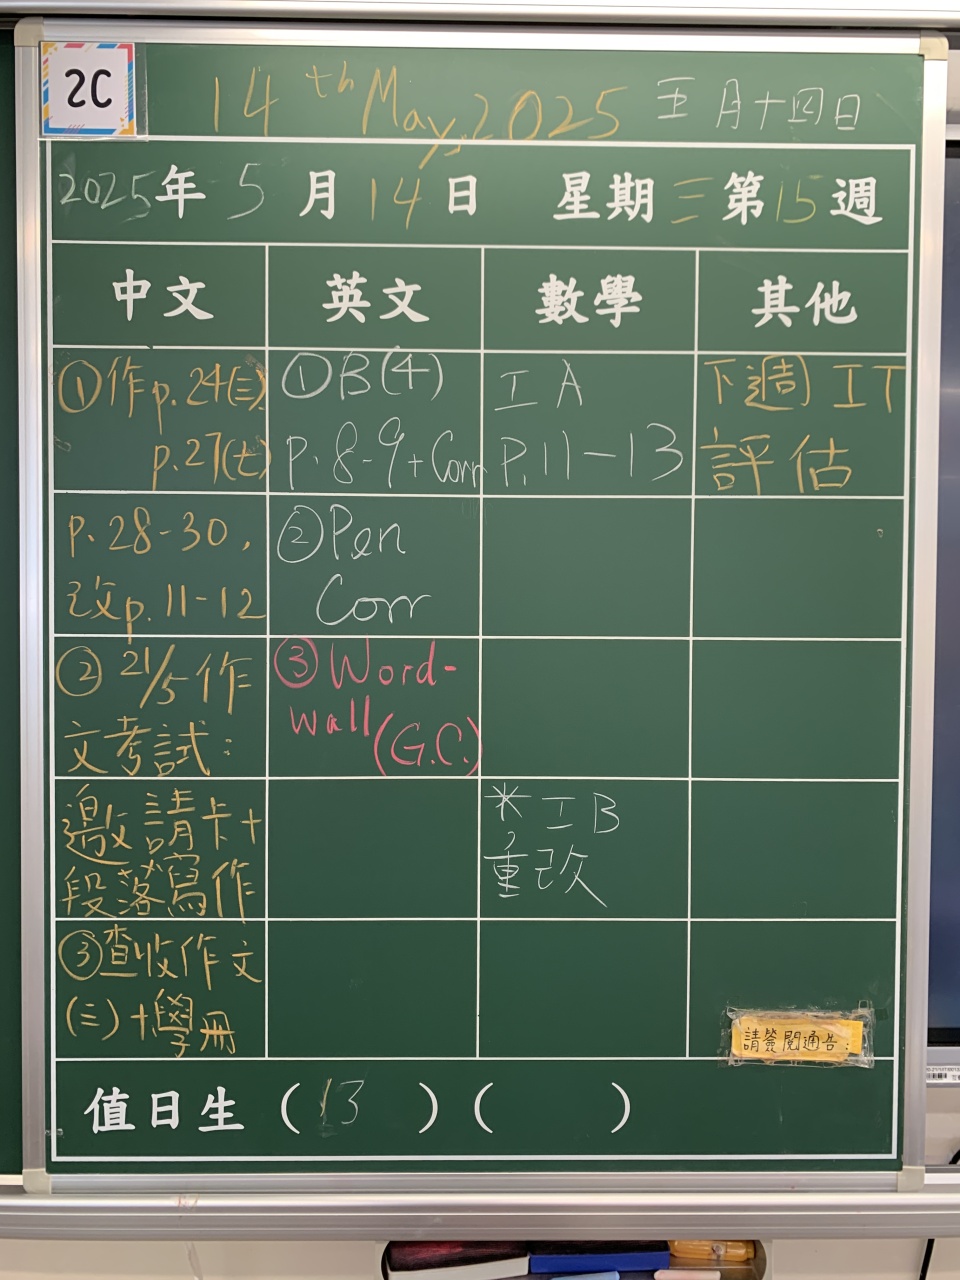 2C
14th May, 2025 五月十四日
2025年5月14日 星期三第15週
中文 英文 數學 其他
①作p.24(三)
p.27(七)
p.28-30,
改p.11-12
②21/5作
文考試:
邀請卡+
段落寫作
③查收作文
(三)+學冊
①B(4)
p.8-9+Corr
②Pen
Corr
③Word-
wall(G.C.)
工A
P.11-13
*工B
重改
下週IT
評估
請簽閱通告:
值日生(13)( )